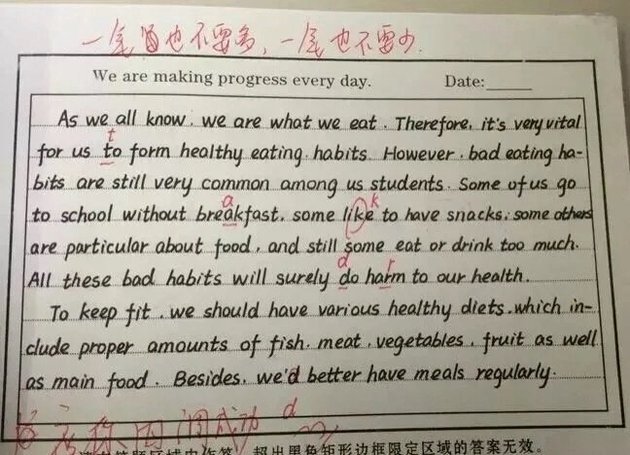 一笔也不要多,一笔也不要少.
We are making progress every day. Date:
As we all know, we are what we eat. Therefore, it's very vital
t
for us to form healthy eating habits. However, bad eating ha-
bits are still very common among us students. Some of us go
a k
to school without breakfast, some like to have snacks, some others
are particular about food, and still some eat or drink too much.
d r
All these bad habits will surely do harm to our health.
To keep fit, we should have various healthy diets, which in-
clude proper amounts of fish, meat, vegetables, fruit as well
as main food. Besides, we'd better have meals regularly.
成功 d
超出黑色矩形边框限定区域的答案无效。